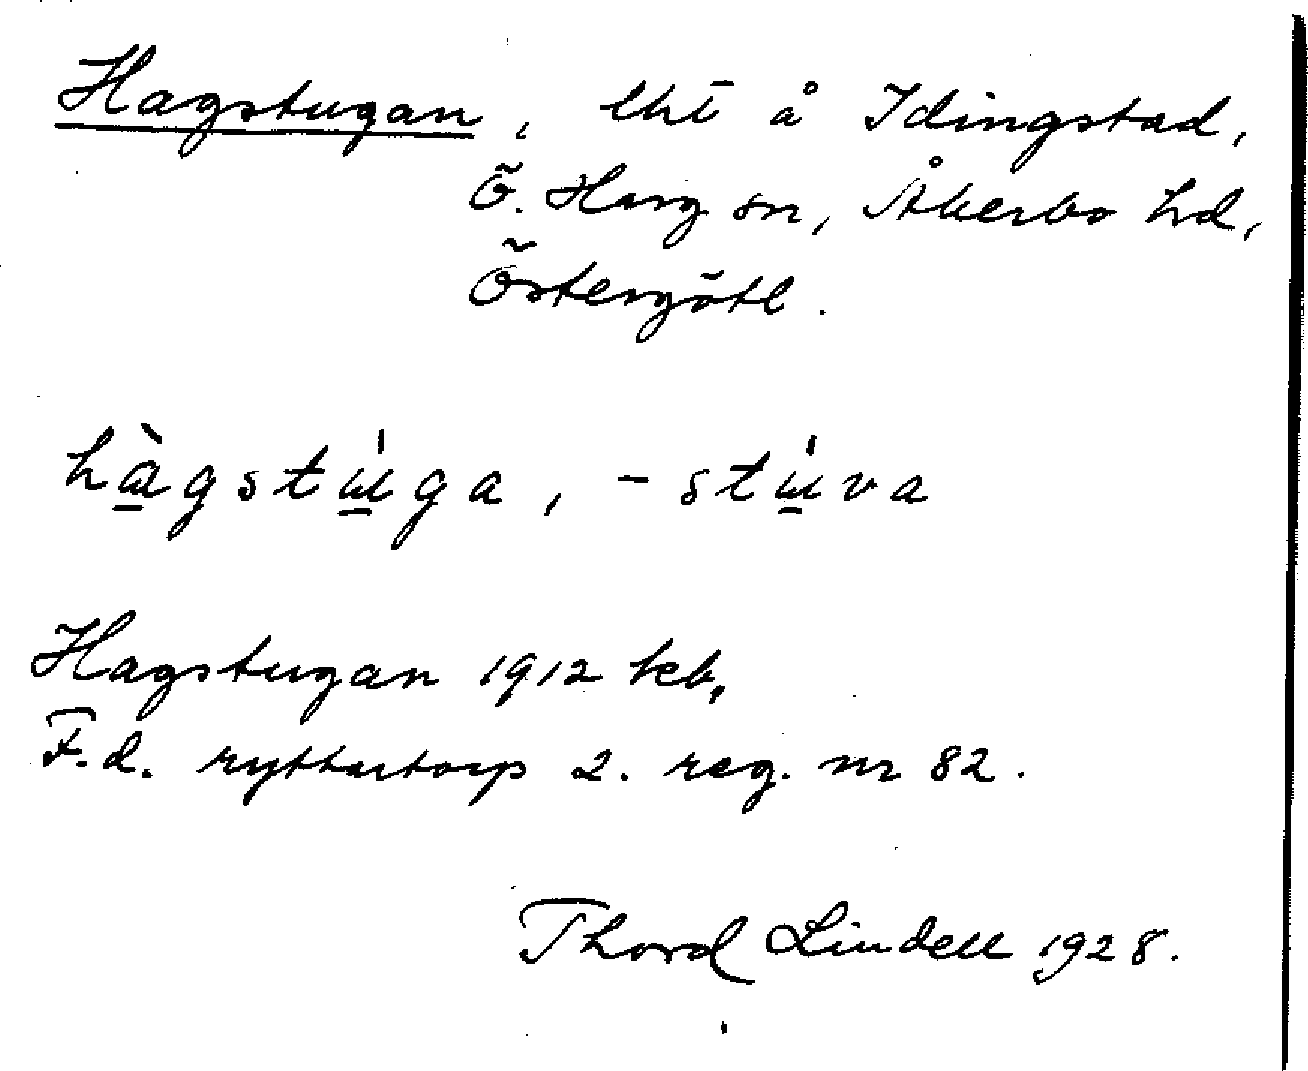 Hagstugan, lht å Idingstad,
Ö. Harg sn, Åkerbo hd,
Östergötl.
hàgstu̍ga, -stu̍va
Hagstugan 1912 keb.
F.d. ryttartorp 2. reg. nr 82.
Thord Lindell 1928.